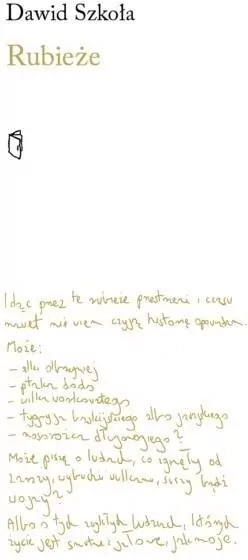 Dawid Szkoła
Rubieże
Idąc przez te rubieże przestrzeni i czasu
nawet nie wiem czyją historię opowiadam.
Może:
- alki olbrzymiej
- ptaka dodo
- wilka workowatego
- tygrysa kaspijskiego albo jawajskiego
- nosorożca długorogiego?
Może piszę o ludziach, co zginęli od
zarazy, wybuchu wulkanu, suszy bądź
wojny?
Albo o tych zwykłych ludziach, których
życie jest smutne i jałowe, jak moje.